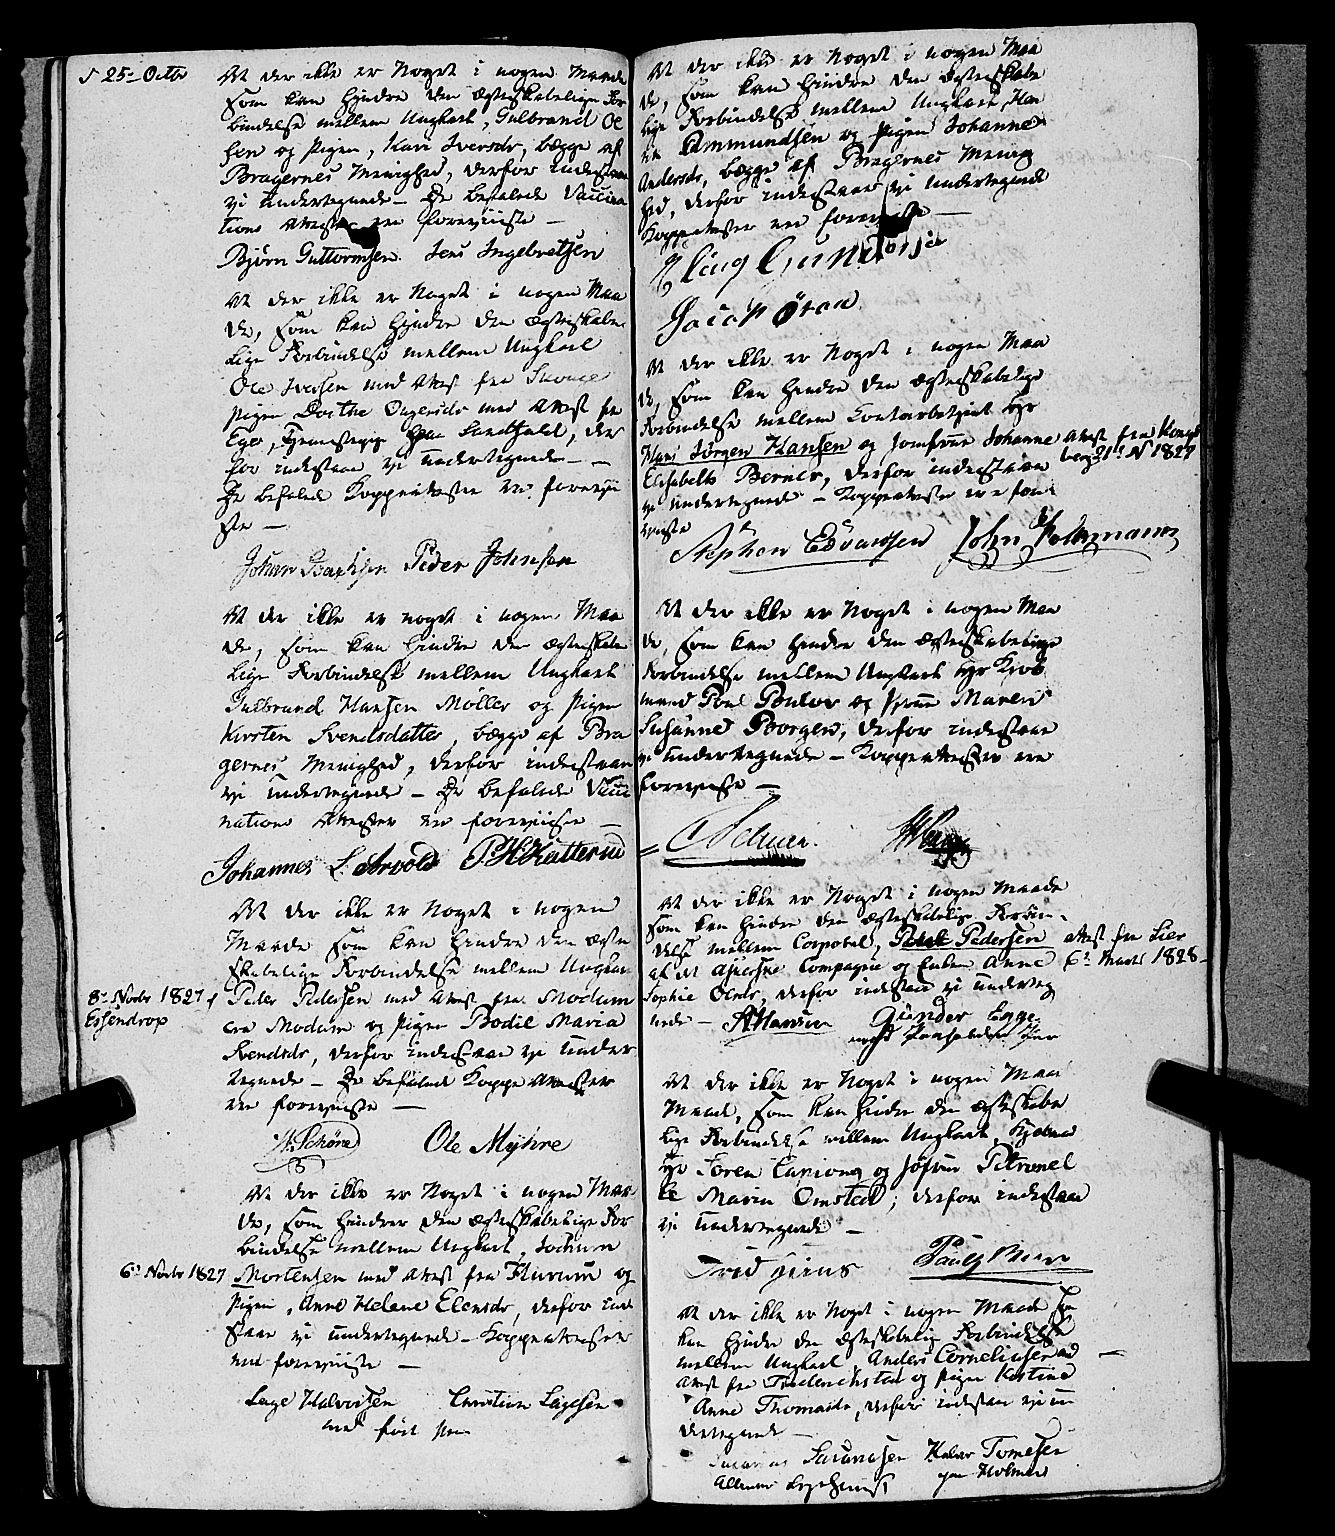 d 25de Octbr
At der ikke er Noget i nogen Maade
som kan hindre den ægteskabelige For
bindelse mellem Ungkarl, Gulbrand Ol
sen og Pigen, Kari Iversdr, begge af
Bragernes Menighed, derfor indestaae
vi undertegnede – De befalede Vaccina
tions Attester ere foreviiste –
Björn Guttormsen. Jens Ingebretsen
At der ikke er Noget i nogen Maa
de, som kan hindre den ægteskabe
lige Forbindelse mellem Ungkarl
Ole Iversen med Attest fra
Pigen Dorthe med Attest fra
Eger, derfor indestaae vi undertegnede –
De befalede Koppeattester ere foreviiste –
Johan Peder Johnsen
At der ikke er noget i nogen Maa
de, som kan hindre den ægteskabe
lige Forbindelse mellem Ungkarl
Gulbrand Hansen Møller og Pigen
Kirsten Svendsdatter, begge af Bra
gernes Menighed, derfor indestaae
vi undertegnede – De befalede Vacci
nations Attester ere foreviiste –
Johannes L. Arvold P H Katterud
At der ikke er Noget i nogen
Maade som kan hindre den ægte
skabelige Forbindelse mellem Ungkarl
8de Novbr 1827
Essendrop
Peder Pedersen med Attest fra Modum
Modum og Pigen Bodil Maria
Svendsdr, derfor indestaae vi under
tegnede – De befalede Koppe Attester
ere foreviiste –
Schöne Ole Myhre
At der ikke er Noget i nogen Maa
de, som hindrer den ægteskabelige For
bindelse mellem Ungkarl, Jochum
6te Novbr 1827
Mortensen med Attest fra Hurum og
Pigen, Anne Helene Elensdr, derfor inde
staae vi undertegnede – Koppeattester
ere foreviiste –
Lage Halvorsen Christian Lagesen
med ført Pen
At der ikke er Noget i nogen Maa
de, som kan hindre den ægteskabe
lige Forbindelse mellem Ungkarl, Han
Ammundsen og Pigen Johanne
Andersdr, begge af Bragernes Menig
hed, derfor indestaaer vi undertegnede
Koppeattester ere foreviiste –
Jacob
At der ikke er Noget i nogen Maa
de, som kan hindre den ægteskabelige
Forbindelse mellem Contoirbetjent Hr
Hans Jörgen Hansen og Jomfrue Johanne
Attest fra Kongs
berg 21de N 1827
Elisabeth Berner, derfor indestaae
vi undertegnede – Koppeattester ere fore
viiste
Stephen Edvardsen John
At der ikke er Noget i nogen Maa
de, som kan hindre den ægteskabelige
Forbindelse mellem Ungkarl Hr
mand Poul og Maren
Susanne Borgen, derfor indestaae
vi undertegnede – Koppeattester ere
foreviiste –
At der ikke er Noget i nogen Maade
som kan hindre den ægteskabelige Forbin
delse mellem Corporal, Peder Pedersen
Attest fra Lier
6te Marts 1828 –
af det Compagnie og Enken Anne
Sophie Olsdr, derfor indestaae vi underteg
nede – A Hansen Gunder Enge
med Paaholden Pen
At der ikke er Noget i nogen Maa
Maade, som kan hindre den ægteskabe
lige Forbindelse mellem Ungkarl,
Hr Sören og Jofrue Petronel
le Maria Omsted; derfor indestaae
vi undertegnede –
At der ikke er Noget i nogen Maade som
kan hindre den ægteskabelig Forbindelse
mellem Ungkarl, Anders Corneliusen med
Attest fra Frederichstad og Pigen Kirstine
Anne Thomasdr, derfor indestaae vi un
dertegnede –
Halvor Tomesen